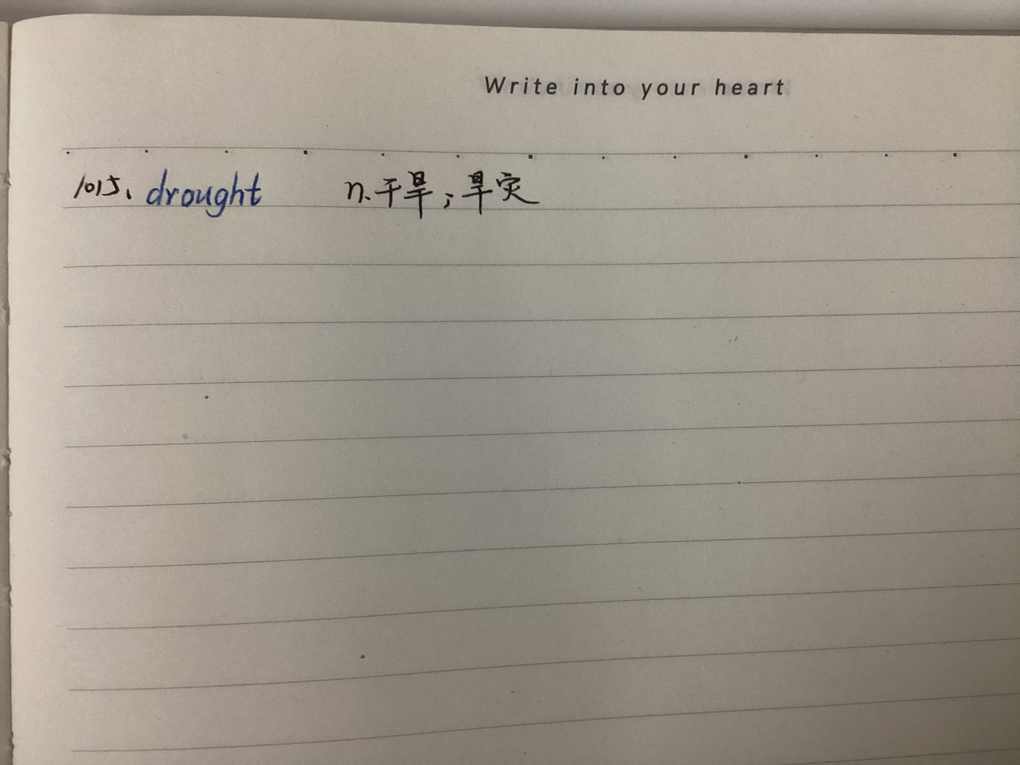 Write into your heart
1015、drought n.干旱；旱灾